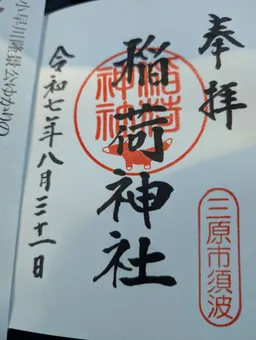 奉拝
稲荷神社
三原市須波
令和七年八月三十一日
小早川隆景公ゆかりの